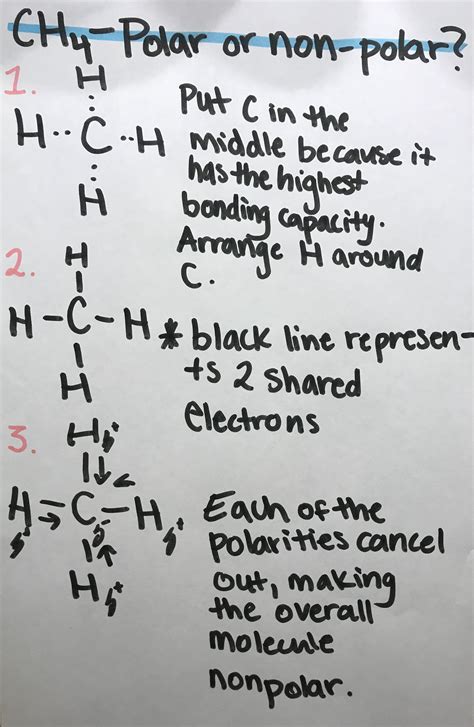 CH4-Polar or non-polar?
1.
H
H·· C ··H
H
Put C in the
middle because it
has the highest
bonding capacity.
Arrange H around
C.
2.
H
H-C-H
H
* black line represen-
ts 2 shared
electrons
3.
H δ+
H-C-H δ+
δ+ δ-
H δ+
Each of the
polarities cancel
out, making
the overall
molecule
nonpolar.